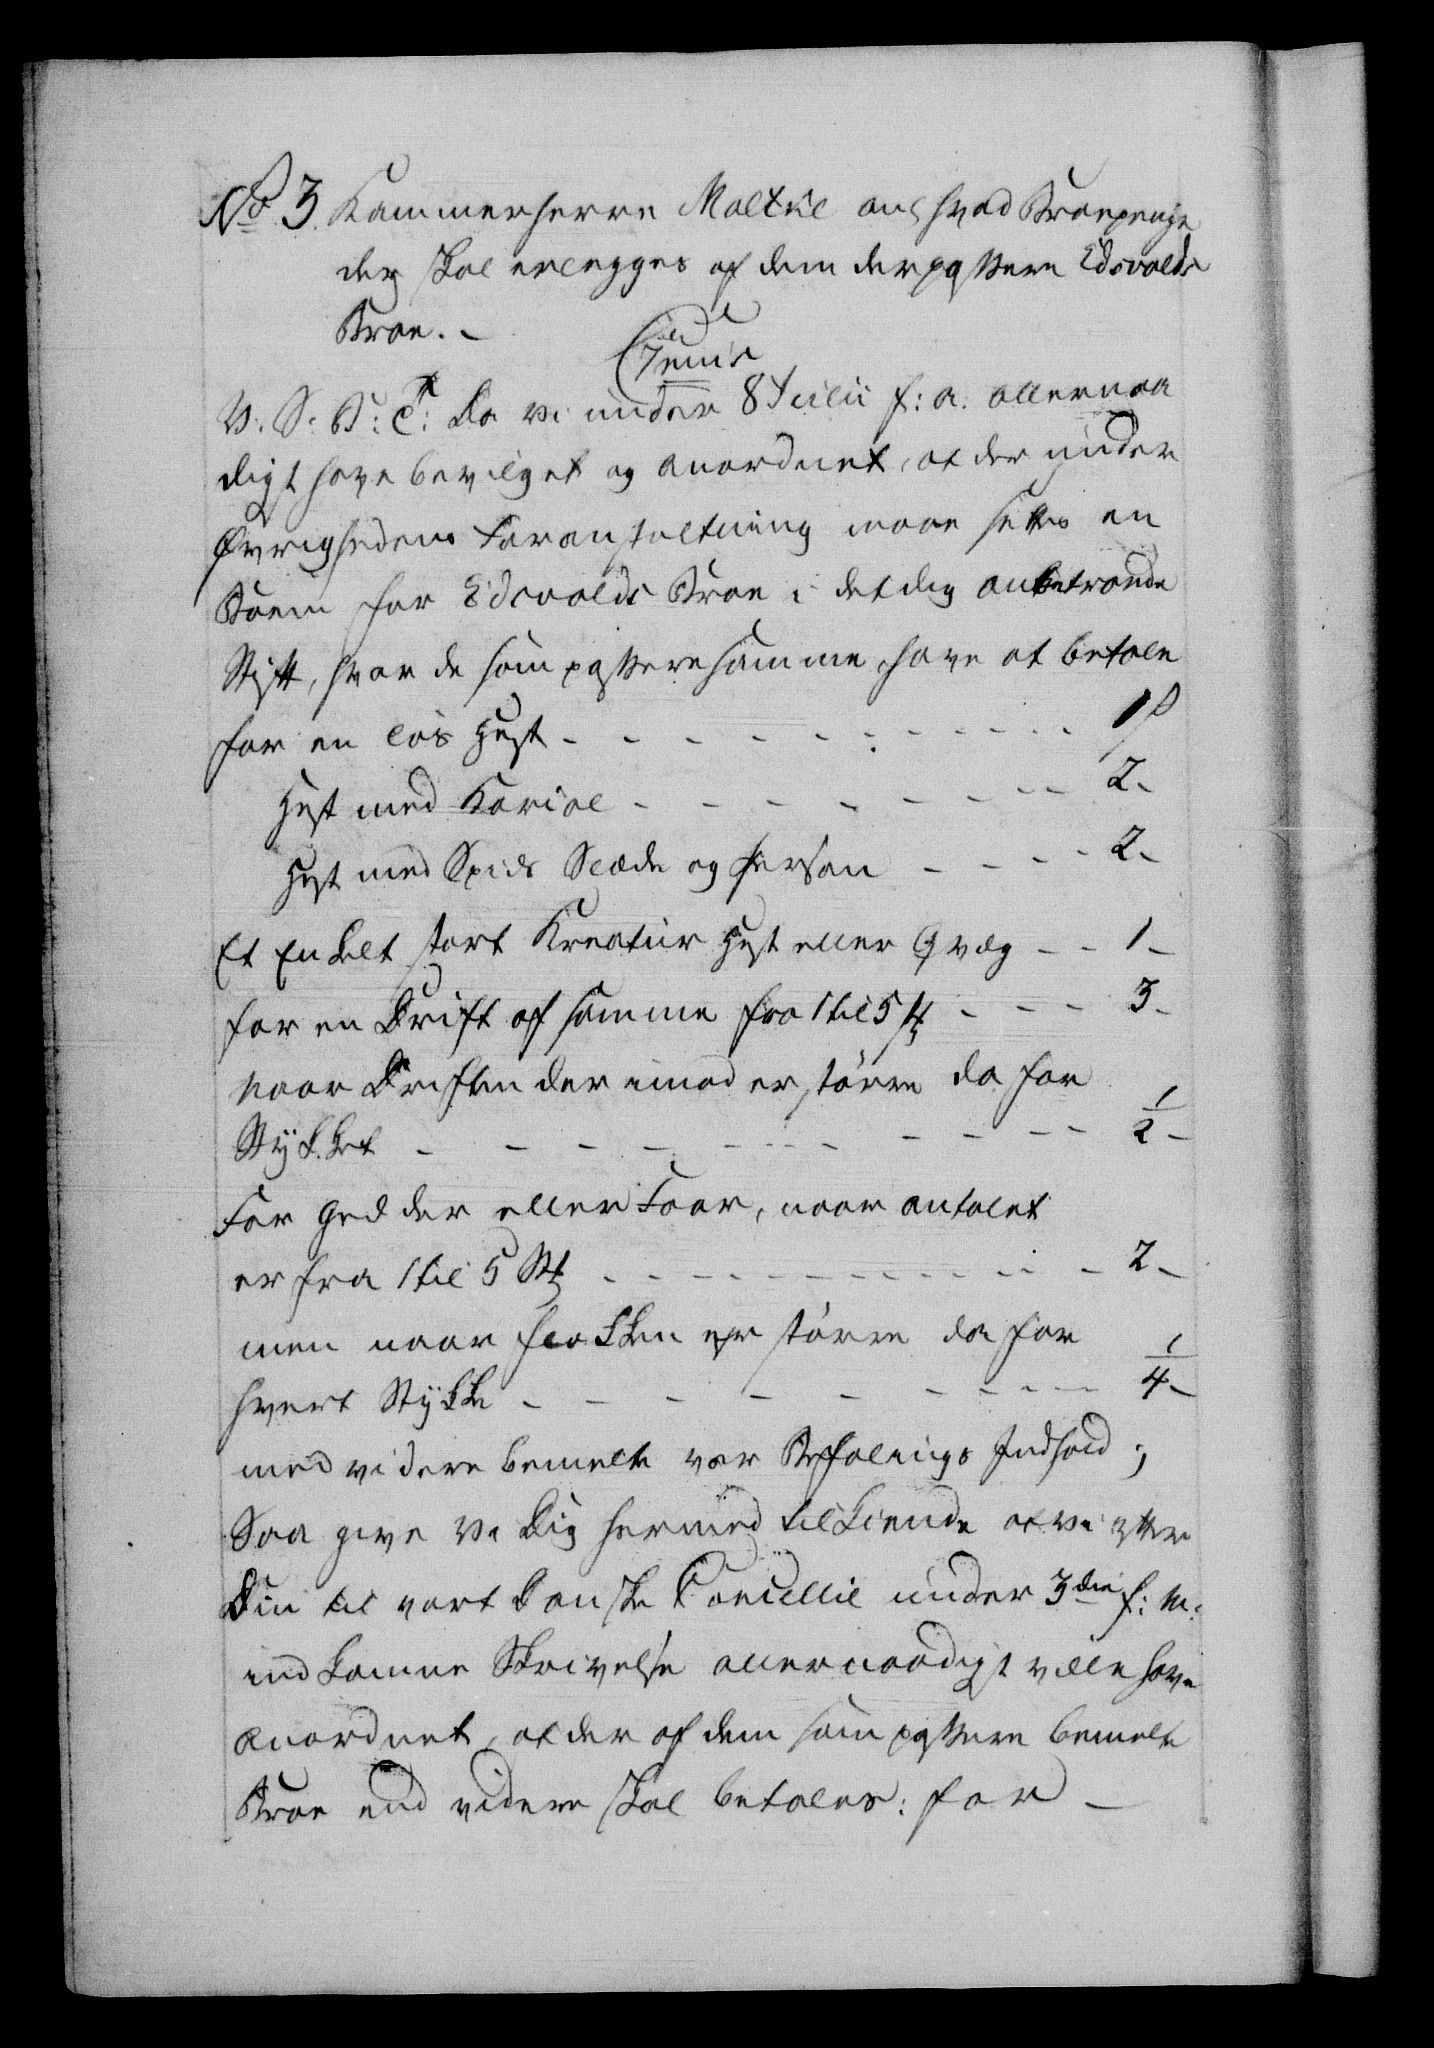 No 3. Kammerherre Moltke anl hvad Broepenge
der skal erlægges af dem der passere Edsvolds
Broe. –
V. S. B: T: Da vi under 8 Julii f: a. allernaa
digt have bevilget og anordnet, at der under
Øvrighedens Foranstaltning maae settes en
Boem for Edsvolds Broe i det dig anbetroede
Stift, hvor de som passere samme, have at betale
for en løs Hest - - - - - - - - - - - 1 ß
Hest med Kariol - - - - - - - - 2 -
Hest med Spids Slæde og Person - - - - 2 -
Et Enkelt stort Kreatur Hest eller Qvæg - - 1 -
for en Drift af samme fra 1 til 5 St - - - 3 -
naar Driften derimod er større da for
Stykket - - - - - - - - - - - 1/2 -
For Gedder eller Faar, naar antalet
er fra 1 til 5 St - - - - - - - - - - 2 -
men naar Flokken er større da for
hvert Stykke - - - - - - - - - - 1/4 -
med videre bemelte vor Befalings Indhold;
Saa give Vi Dig hermed tilkiende at vi efter
Din til vort Danske Cancellie under 3die f: M:
indkomne Skrivelse allernaadigst ville have
anordnet, at der af dem som passere bemelte
Broe end videre skal betales: for –